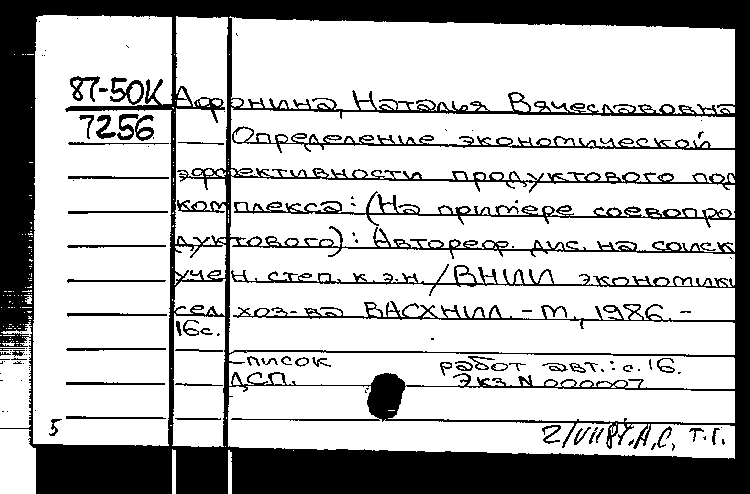 87-50К
7256
Афонина, Наталья Вячеславовна
Определение экономической
эффективности продуктового под
комплекса: (На примере соевопро
дуктового): Автореф. дис. на соиск
учен. степ. к.э.н. / ВНИИ экономики
сел. хоз-ва ВАСХНИЛ. - М., 1986. -
16с.
Список работ авт.: с. 16.
ДСП. Экз. N 000007
5 2/VII 87. А.С. Т.Г.